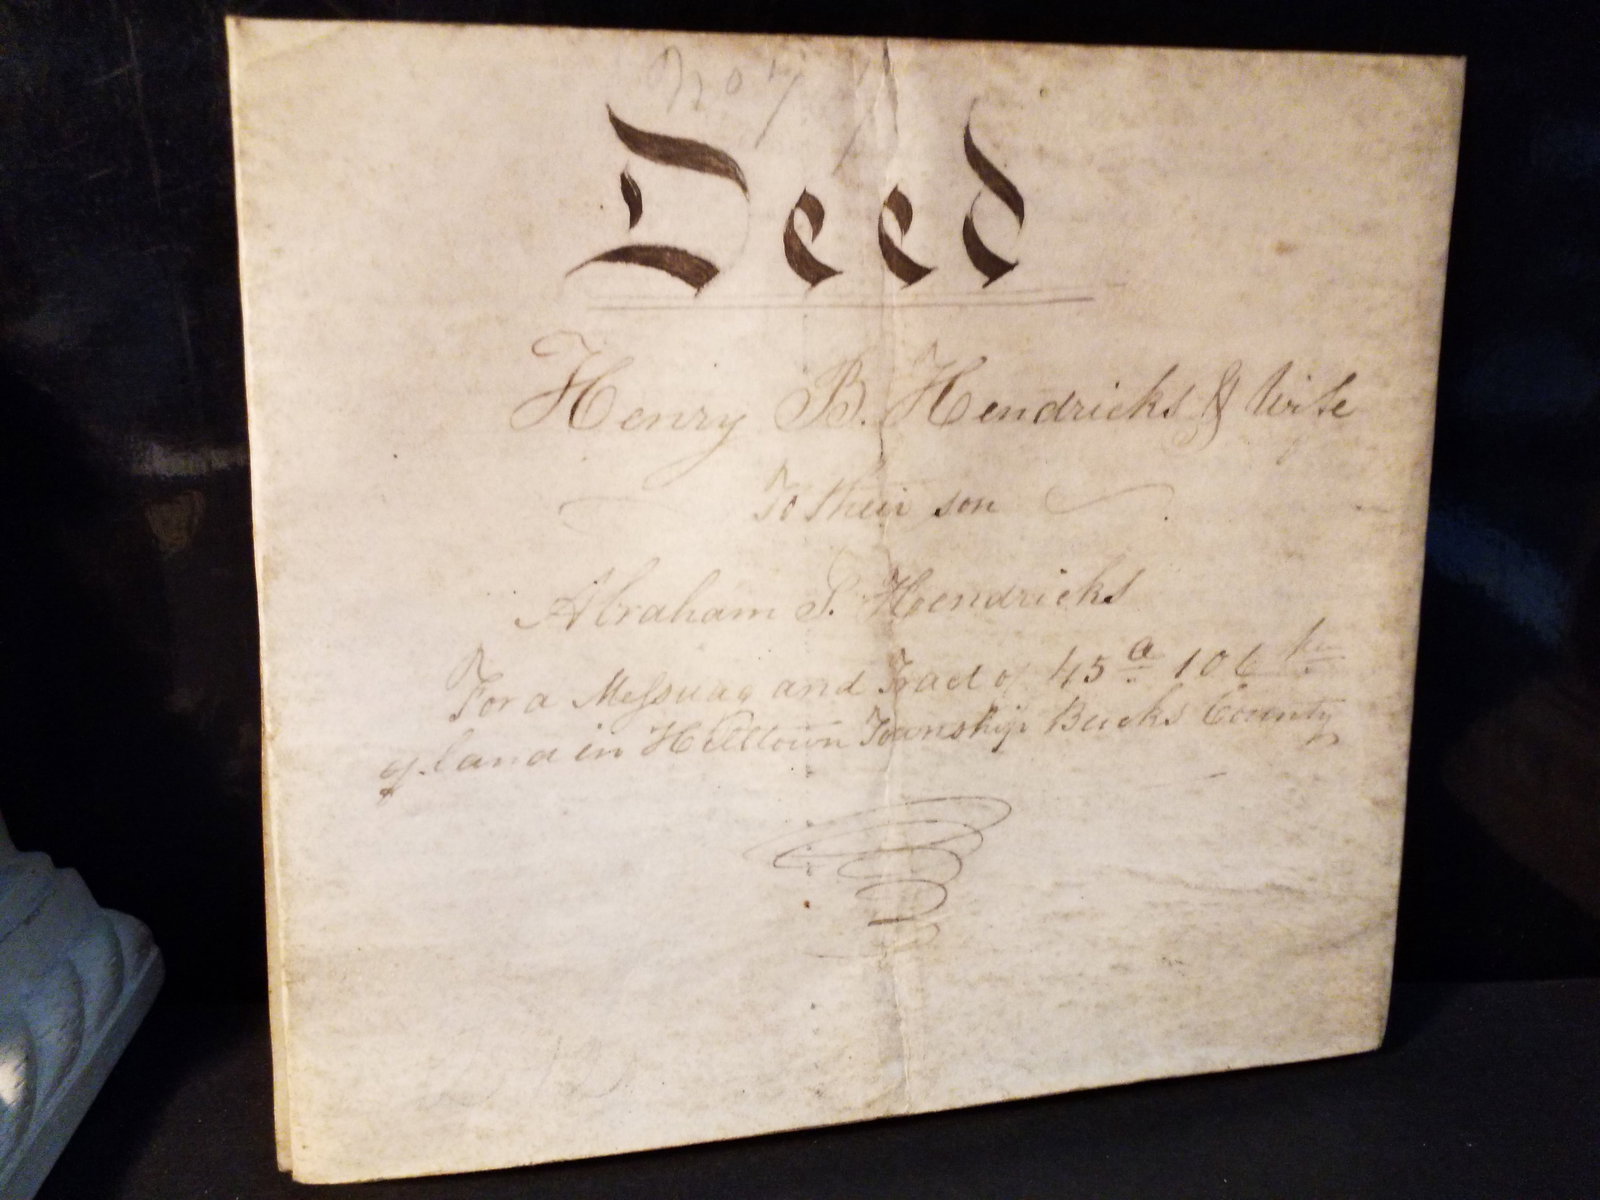 No 7
Deed
Henry B. Hendricks & Wife
To their son
Abraham P. Hendricks
For a Meſsuag and Tract of 45 a 106
of land in Hilltown Township Bucks County